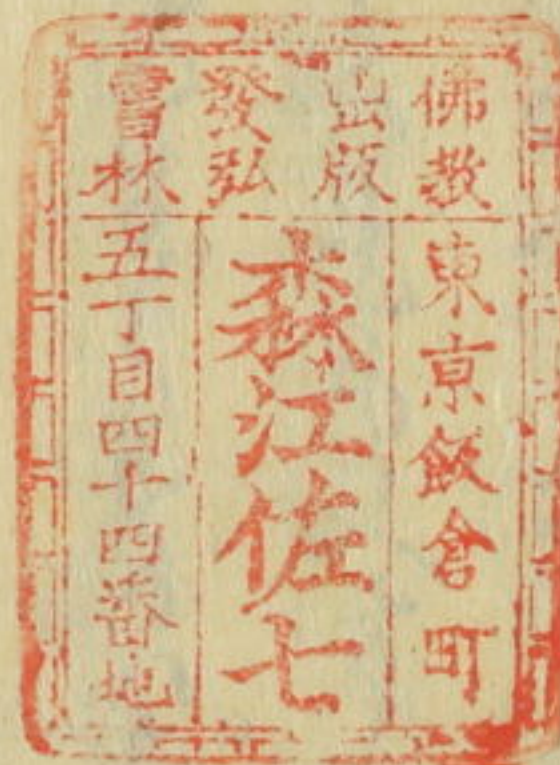 佛教
出版
發弘
書林
東京飯倉町
森江佐七
五丁目四十四番地